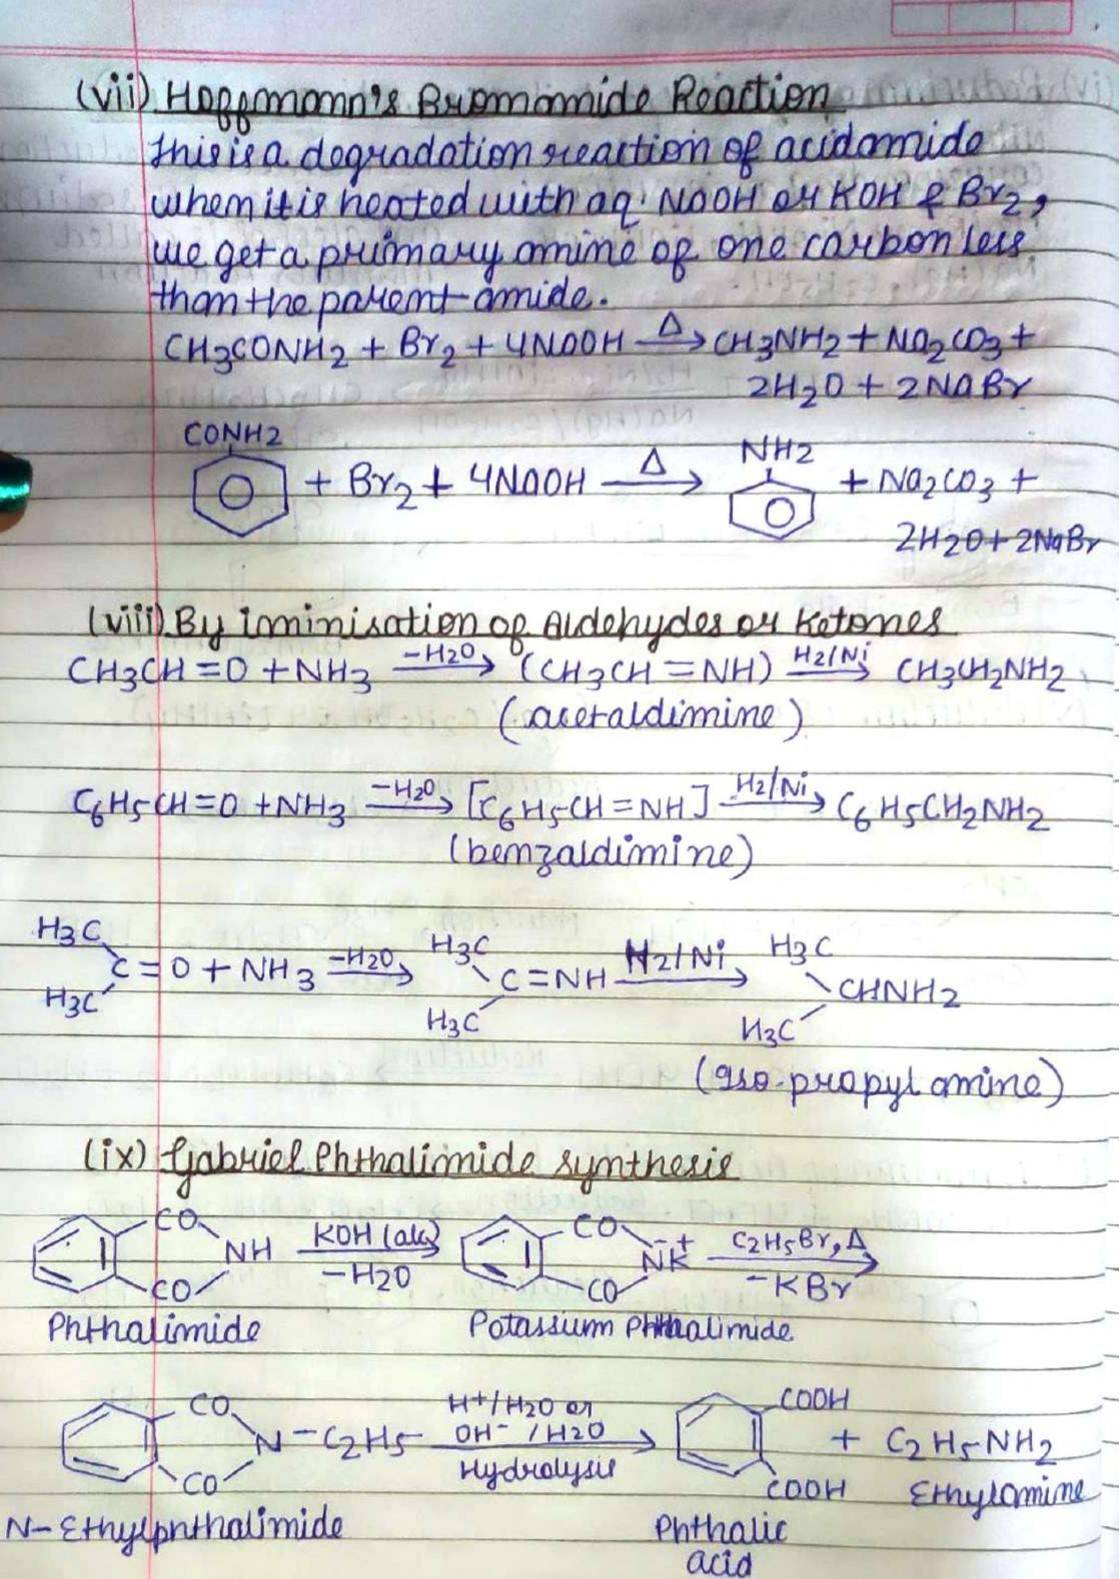 (vii) Hoffmann's Bromamide Reaction
This is a degradation reaction of acidamide
when it is heated with aq. NaOH or KOH & Br2,
we get a primary amine of one carbon less
than the parent amide.
CH3CONH2 + Br2 + 4NaOH Δ→ CH3NH2 + Na2CO3 +
2H2O + 2NaBr
CONH2 NH2
+ Br2 + 4NaOH Δ→ + Na2CO3 +
2H2O + 2NaBr
(viii) By iminisation of Aldehydes or Ketones
CH3CH=O + NH3 -H2O→ (CH3CH=NH) H2/Ni→ CH3CH2NH2
(acetaldimine)
C6H5CH=O + NH3 -H2O→ [C6H5CH=NH] H2/Ni→ C6H5CH2NH2
(benzaldimine)
H3C H3C H3C
C=O + NH3 -H2O→ C=NH H2/Ni→ CHNH2
H3C H3C H3C
(Iso-propyl amine)
(ix) Gabriel Phthalimide synthesis
CO CO
NH KOH (alc) → NK - + C2H5Br, Δ →
-H2O -KBr
CO CO
Phthalimide Potassium Phthalimide
CO H+/H2O or COOH
N-C2H5 OH- /H2O → + C2H5-NH2
CO Hydrolysis COOH Ethylamine
N-Ethylphthalimide Phthalic
acid